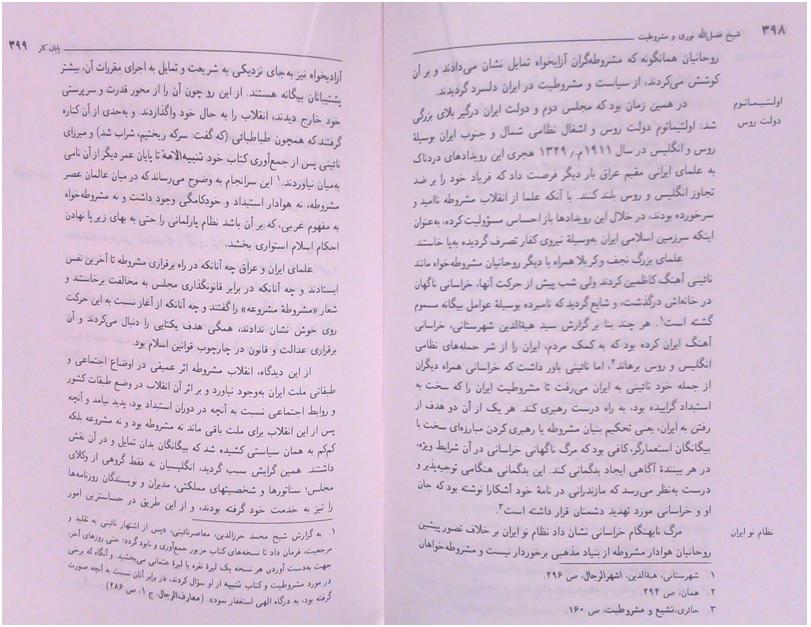 ۳۹۸
شیخ فضل‌الله نوری و مشروطیت
روحانیان همانگونه که مشروطه‌گران آزادیخواه تمایل نشان می‌دادند و بر آن
کوشش می‌کردند، از سیاست و مشروطیت در ایران دلسرد گردیدند.
اولتیماتوم
دولت روس
در همین زمان بود که مجلس دوم و دولت ایران درگیر بلای بزرگی
شد: اولتیماتوم دولت روس و اشغال نظامی شمال و جنوب ایران بوسیلهٔ
روس و انگلیس در سال ۱۹۱۱م./ ۱۳۲۹ هجری این رویدادهای دردناک
به علمای ایرانی مقیم عراق بار دیگر فرصت داد که فریاد خود را بر ضد
تجاوز انگلیس و روس بلند کنند. با آنکه علما از انقلاب مشروطه ناامید و
سرخورده بودند، در خلال این رویدادها باز احساس مسؤولیت کرده، به‌عنوان
اینکه سرزمین اسلامی ایران به‌وسیلهٔ نیروی کفار تصرف گردیده به‌پا خاستند.
علمای بزرگ نجف و کربلا همراه با دیگر روحانیان مشروطه‌خواه مانند
نائینی آهنگ کاظمین کردند ولی شب پیش از حرکت آنها، خراسانی ناگهان
در خانه‌اش درگذشت، و شایع گردید که نامبرده بوسیلهٔ عوامل بیگانه مسموم
گشته است۱. هر چند بنا بر گزارش سید هبةالدین شهرستانی، خراسانی
آهنگ ایران کرده بود که به کمک مردم، ایران را از شر حمله‌های نظامی
انگلیس و روس برهاند۲. اما نائینی باور داشت که خراسانی همراه دیگران
از جمله خود نائینی به ایران می‌رفت تا مشروطیت ایران را که سخت به
استبداد گراییده بود، به راه درست رهبری کند. هر یک از آن دو هدف از
رفتن به ایران، یعنی تحکیم بنیان مشروطه یا رهبری کردن مبارزه‌ای سخت با
بیگانگان استعمارگر، کافی بود که مرگ ناگهانی خراسانی در آن شرایط ویژه،
در هر بینندهٔ آگاهی ایجاد بدگمانی کند. این بدگمانی هنگامی توجیه‌پذیر و
درست به‌نظر می‌رسد که مازندرانی در نامهٔ خود آشکارا نوشته بود که جان
او و خراسانی مورد تهدید دشمنان قرار داشته است۳.
نظام نو ایران
مرگ نابهنگام خراسانی نشان داد نظام نو ایران بر خلاف تصور پیشین
روحانیان هوادار مشروطه از بنیاد مذهبی برخوردار نیست و مشروطه‌خواهان
۱. شهرستانی، هبةالدین، اشهرالرجال، ص ۲۹۶.
۲. همان، ص ۲۹۴
۳. حائری، تشیع و مشروطیت، ص ۱۶۰.
پایان کار
۳۹۹
آزادیخواه نیز به‌جای نزدیکی به شریعت و تمایل به اجرای مقررات آن، بیشتر
پشتیبانان بیگانه هستند. از این رو چون آن را از محور قدرت و سرپرستی
خود خارج دیدند، انقلاب را به حال خود واگذاردند. و به‌حدی از آن کناره
گرفتند که همچون طباطبائی (که گفت: سرکه ریختیم، شراب شد) و میرزای
نائینی پس از جمع‌آوری کتاب خود تنبیه‌الامة تا پایان عمر دیگر از آن نامی
به‌میان نیاوردند.۱ این سرانجام به وضوح می‌رساند که در میان عالمان عصر
مشروطه، نه هوادار استبداد و خودکامگی وجود داشت و نه مشروطه‌خواه
به مفهوم غربی، که بر آن باشد نظام پارلمانی را حتی به بهای زیر پا نهادن
احکام اسلام استواری بخشد.
علمای ایران و عراق چه آنانکه در راه برقراری مشروطه تا آخرین نفس
ایستادند و چه آنانکه در برابر قانونگذاری مجلس به مخالفت برخاستند و
شعار «مشروطهٔ مشروعه» را گفتند و چه آنانکه از آغاز نسبت به این حرکت
روی خوش نشان ندادند، همگی هدف یکتایی را دنبال می‌کردند و آن
برقراری عدالت و قانون در چارچوب قوانین اسلام بود.
از این دیدگاه، انقلاب مشروطه اثر عمیقی در اوضاع اجتماعی و
طبقاتی ملت ایران به‌وجود نیاورد و بر اثر آن انقلاب در وضع طبقات کشور
و روابط اجتماعی نسبت به آنچه در دوران استبداد بود، پدید نیامد و آنچه
پس از این انقلاب برای ملت باقی ماند نه مشروطه بود و نه مشروعه بلکه
کم‌کم به همان سیاستی کشیده شد که بیگانگان بدان تمایل و در آن نقش
داشتند. همین گرایش سبب گردید، انگلیسیان نه فقط گروهی از وکلای
مجلس؛ سناتورها و شخصیتهای مملکتی، مدیران و نویسندگان روزنامه‌ها
را نیز به خدمت خود گرفته بودند، و از این طریق در حساسترین امور
۱ به گزارش شیخ محمد حرزالدین، معاصر نائینی، «پس از اشتهار نائینی به تقلید و
مرجعیت، فرمان داد تا نسخه‌های کتاب مزبور جمع‌آوری و نابود گردد؛ حتی روزهای آخر،
جهت به‌دست آوردن هر نسخه یک لیرهٔ نقره یا لیرهٔ عثمانی می‌بخشید. و آنگاه که برخی
در مورد مشروطیت و کتاب تنبیه از او سؤال کردند، در برابر آنان نسبت به آنچه صورت
گرفته بود، به درگاه الهی استغفار نمود». (معارف‌الرجال، ج ۱، ص ۲۸۶)